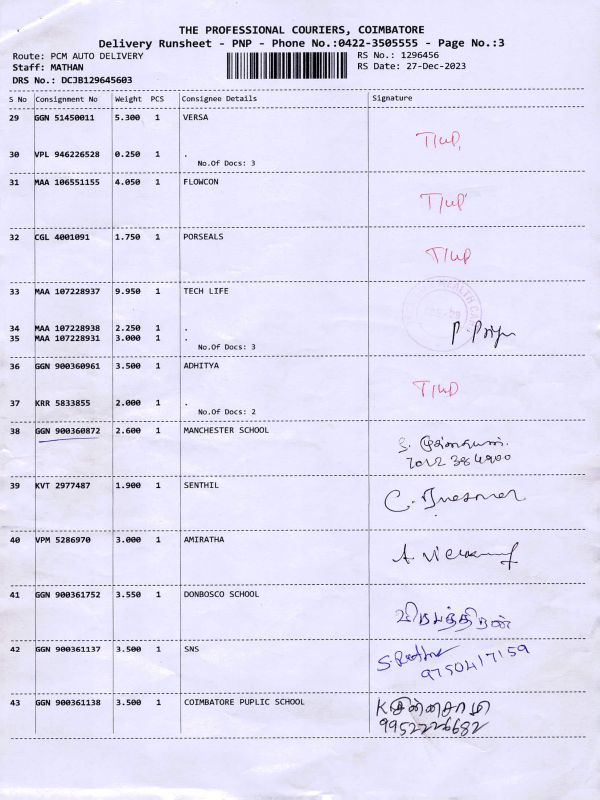 THE PROFESSIONAL COURIERS, COIMBATORE
Delivery Runsheet - PNP - Phone No.:0422-3505555 - Page No.:3
Route: PCM AUTO DELIVERY RS No.: 1296456
Staff: MATHAN RS Date: 27-Dec-2023
DRS No.: DCJB129645603
S No Consignment No Weight PCS Consignee Details Signature
29 GGN 51450011 5.300 1 VERSA
T/up
30 VPL 946226528 0.250 1 .
No.Of Docs: 3
31 MAA 106551155 4.050 1 FLOWCON
T/up
32 CGL 4001091 1.750 1 PORSEALS
T/up
33 MAA 107228937 9.950 1 TECH LIFE
34 MAA 107228938 2.250 1 .
35 MAA 107228931 3.000 1 .
No.Of Docs: 3
36 GGN 900360961 3.500 1 ADHITYA
T/up
37 KRR 5833855 2.000 1 .
No.Of Docs: 2
38 GGN 900360872 2.600 1 MANCHESTER SCHOOL
39 KVT 2977487 1.900 1 SENTHIL
40 VPM 5286970 3.000 1 AMIRATHA
41 GGN 900361752 3.550 1 DONBOSCO SCHOOL
42 GGN 900361137 3.500 1 SNS
9750417159
43 GGN 900361138 3.500 1 COIMBATORE PUPLIC SCHOOL
K சின்சாமி
9952226682